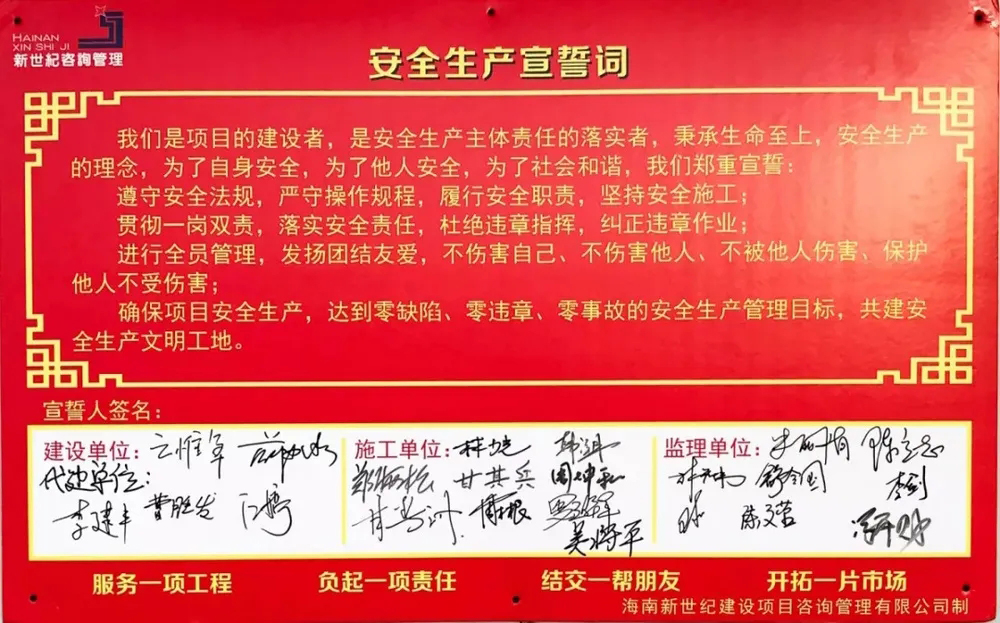 HAINAN
XIN SHI JI
新世紀咨詢管理
安全生产宣誓词
我们是项目的建设者，是安全生产主体责任的落实者，秉承生命至上，安全生产
的理念，为了自身安全，为了他人安全，为了社会和谐，我们郑重宣誓：
遵守安全法规，严守操作规程，履行安全职责，坚持安全施工；
贯彻一岗双责，落实安全责任，杜绝违章指挥，纠正违章作业；
进行全员管理，发扬团结友爱，不伤害自己、不伤害他人、不被他人伤害、保护
他人不受伤害；
确保项目安全生产，达到零缺陷、零违章、零事故的安全生产管理目标，共建安
全生产文明工地。
宣誓人签名：
建设单位：
代建单位：
李建丰 曹胜发
施工单位：林
甘其兵
吴将平
监理单位：
李剑
陈文蓉
服务一项工程 负起一项责任 结交一帮朋友 开拓一片市场
海南新世纪建设项目咨询管理有限公司制